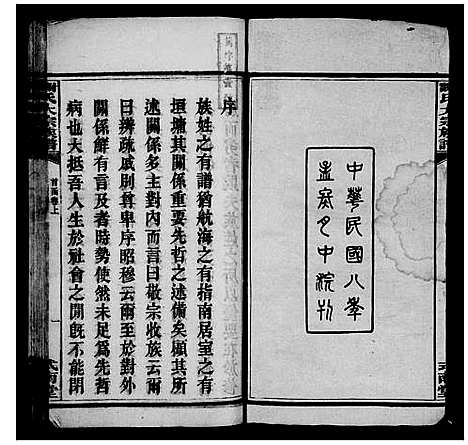 中華民國八年
孟冬月中浣刊
序
族姓之有譜猶航海之有指南居室之有
垣墉其關係重要先哲之述備矣顧其所
述關係多主對內而言曰敬宗收族云爾
曰辨疏戚別尊卑序昭穆云爾至於對外
關係鮮有言及者時勢使然未足爲先哲
病也夫挋吾人生於社會之間旣不能閉
首四卷上
一
氏大宗族譜